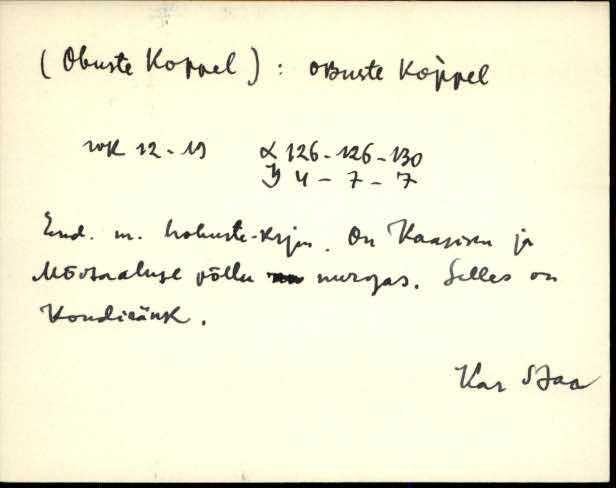 (Obuste Koppel) : oBuste Kop̀pel
wk 12 - 19 X 126 - 126 - 130
y 4 - 7 - 7
End. m. hobuste-. On ja
Mõisaaluse põllu nurgas. Selles on
Kondiränk.
Kar